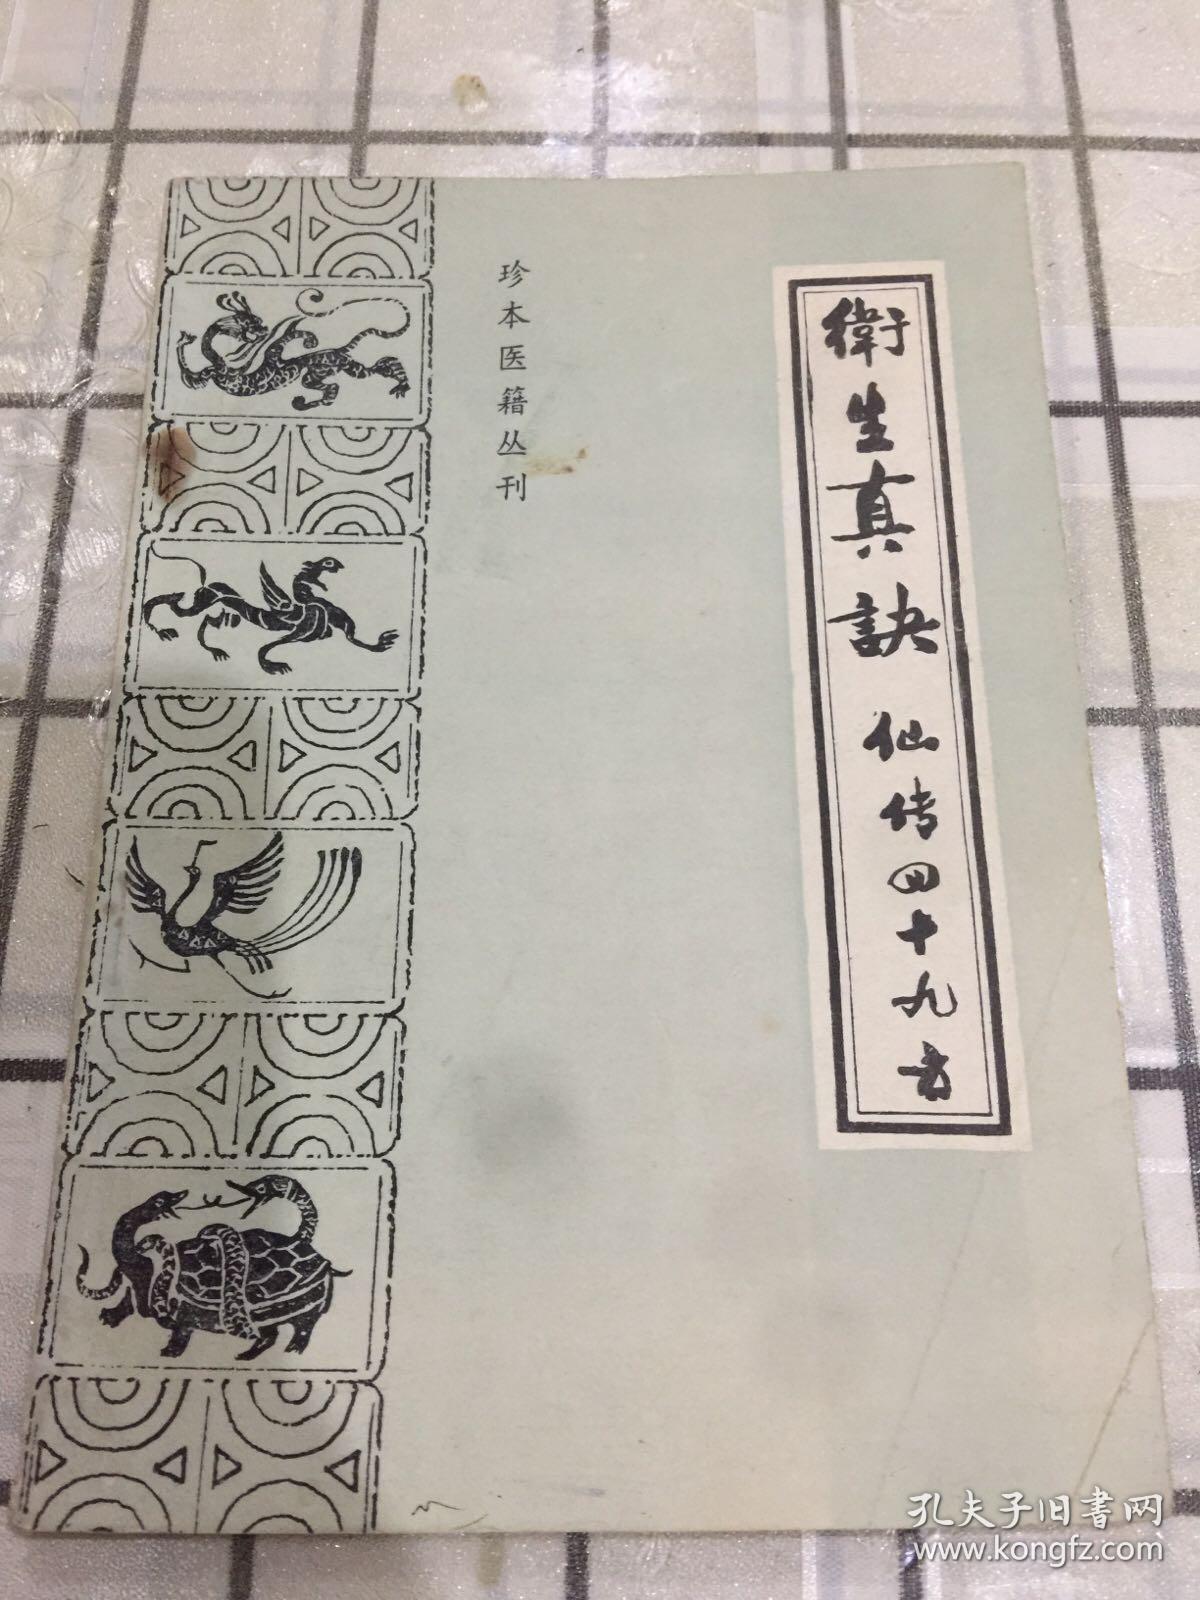 衛生真訣 仙传四十九方
珍本医籍丛刊
孔夫子旧书网
www.kongfz.com